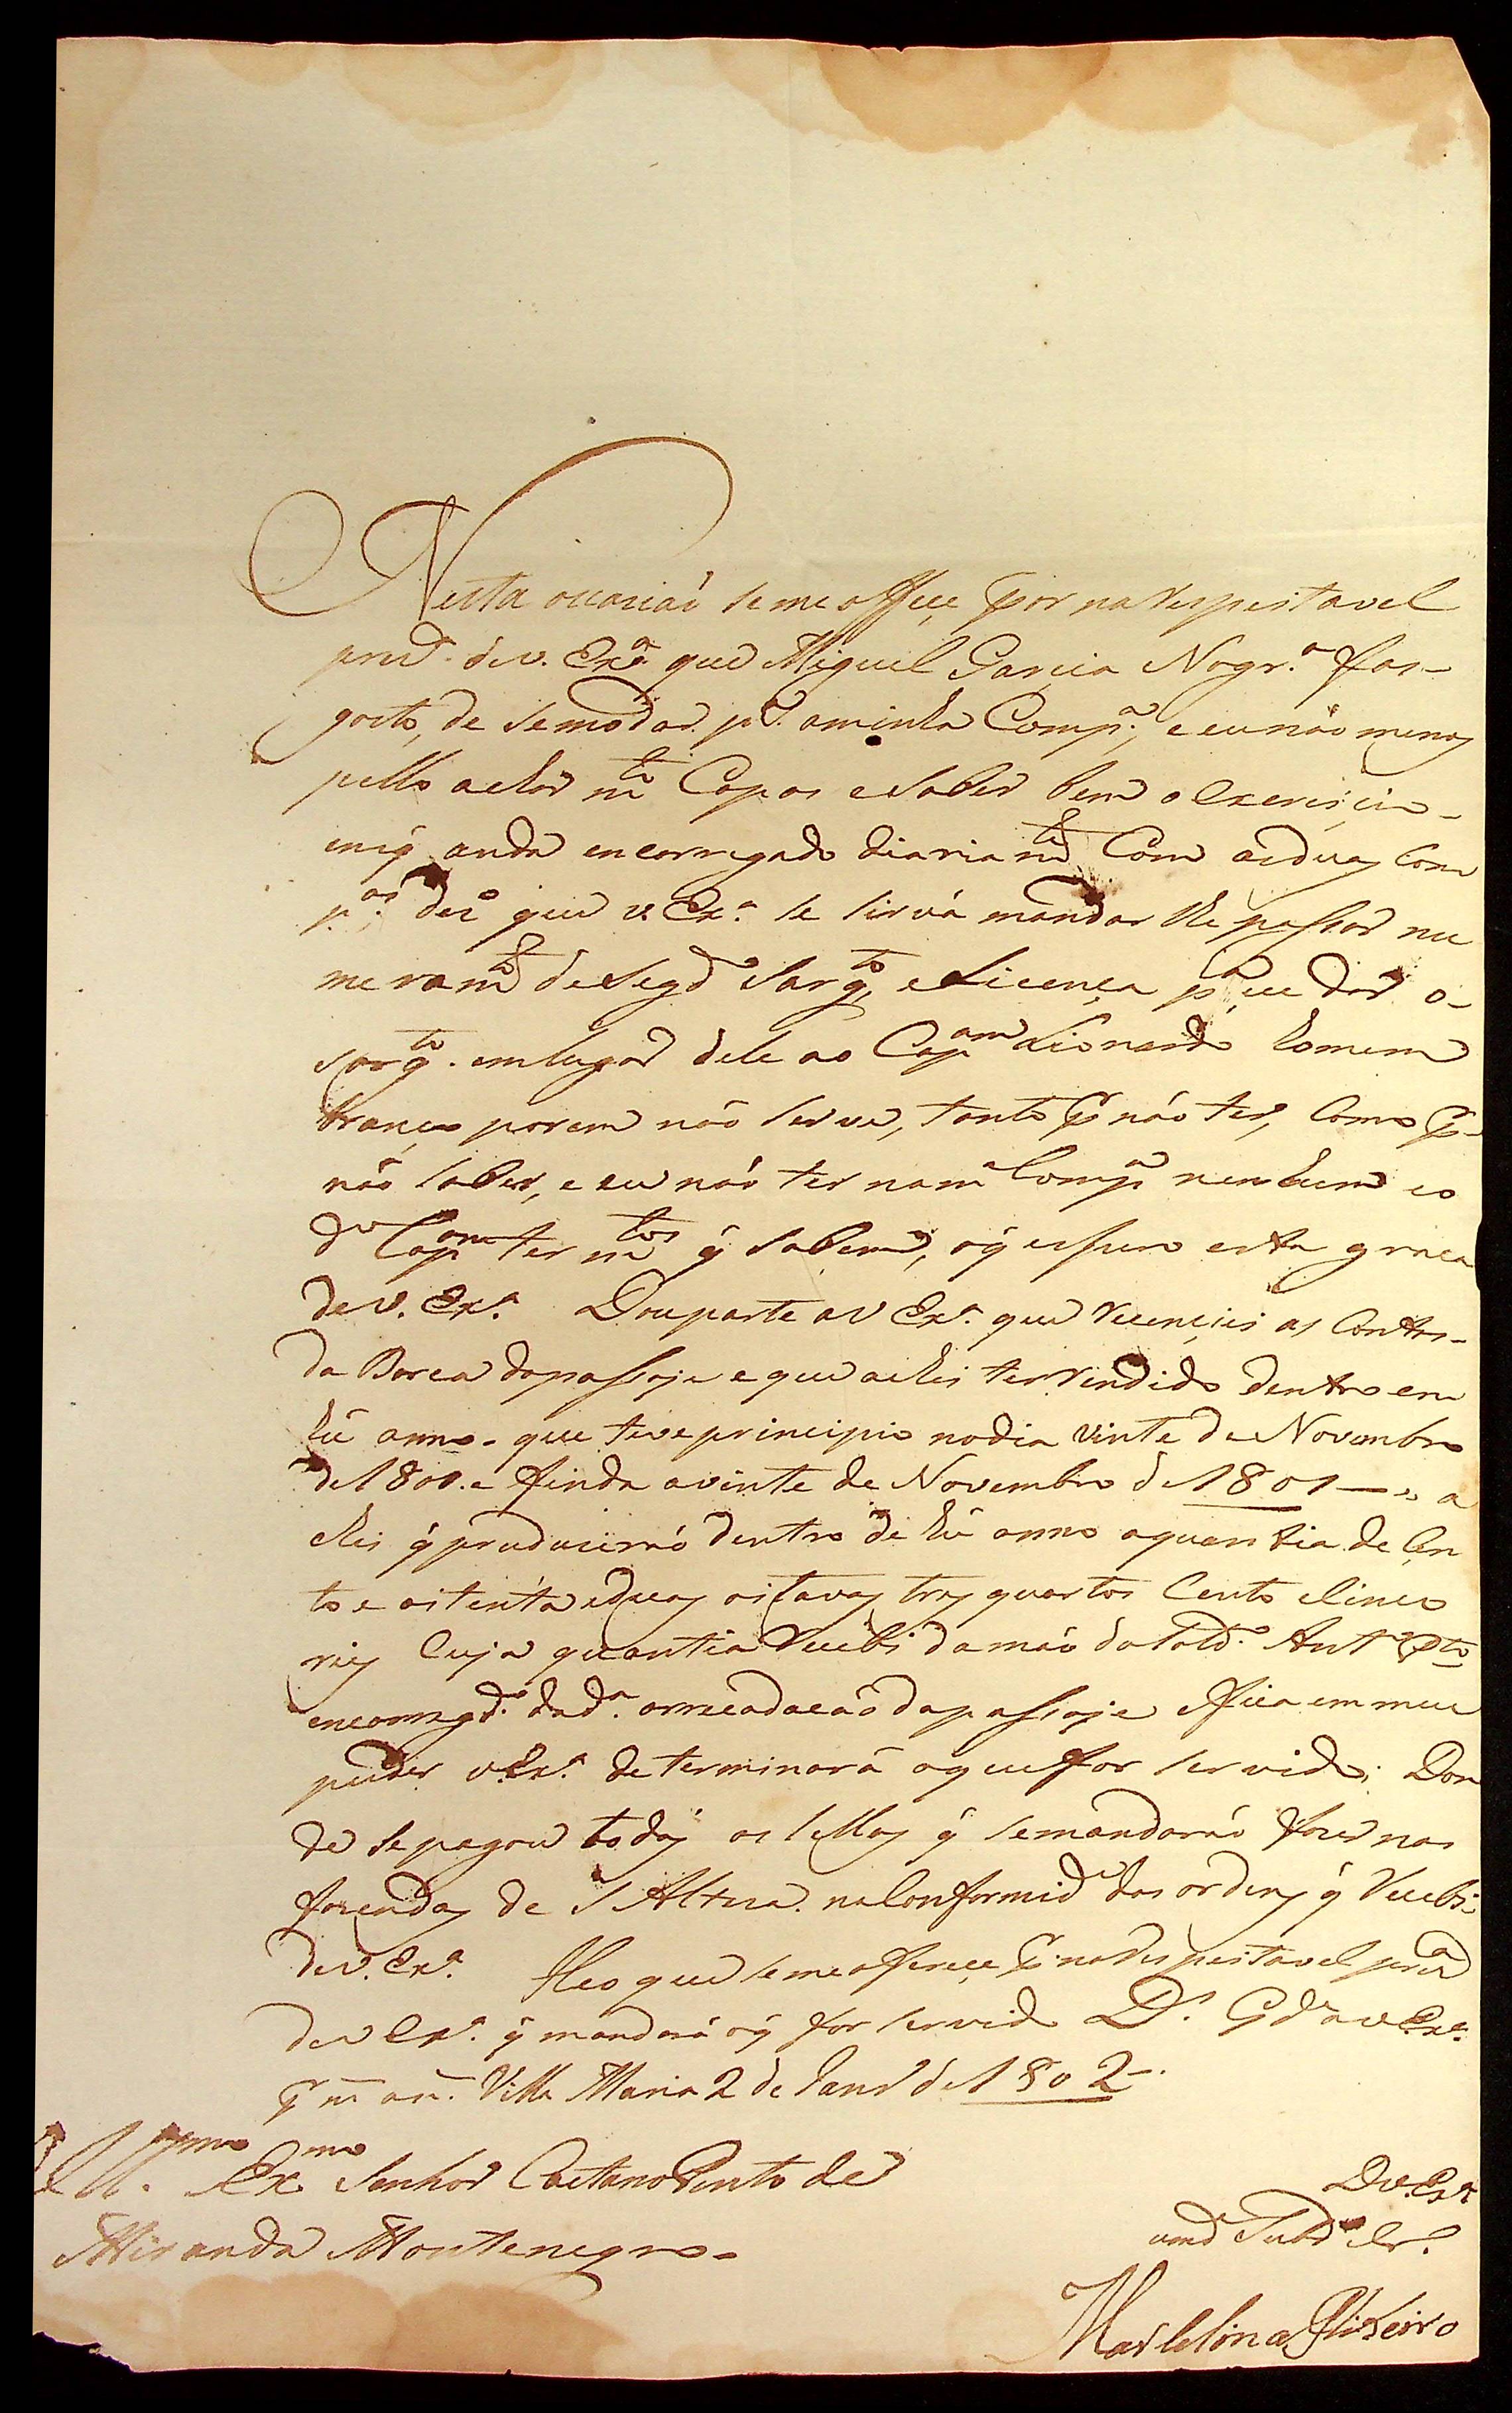 Nesta occaziaó se me offeçe por na Respeitavel
prezª. de V. Exª. que Miguel Garcia Nogr.ª fas
gosto, de semodar pª. aminha Compª., e eu não menos
pello achar mto Capas e saber bem o Exerciçio
en q̃ anda encarregado diariamte Com as duas Com
p.as; dez.o que V. Exª. se sirva mandar lhe passar nu
meramto de Segdo Sargto, e Licença pª eu dar o
sargto. em lugar dele ao Capam Lionardo homem
branco porem não serve, tanto p̃ não ter, Como p̃
não saber, e eu não ter na mª Compª nenhum eo
do Capam ter mtos q̃ sabem, o q̃ espero esta graca
de V. Exª. Dou parte a V Exª. que Recenciei as Contas
da Barca da passaje e que achei ter Rendido dentro em
hũ anno que teve principio no dia vinte de Novembro
de 1800. e finda a vinte de Novembro de 1801 — a
chei q̃ produciraó dentro de hũ anno a quantia de Cen
to e oitenta e duas oitavas tres quartos Cento e Cinco
reis Cuja quantia Recebi da mão do Sold.º Antº Pto
encarregd.º da dª. arrecadacaó da passaje e fica em meu
puder V. Exª. determinará o que for servido; Don
de se pagou todas as sellas q̃ se mandaraó fazer nas
fazendas de S Altza. na Conformide das ordens q̃ Recebi
de V. Exª. Heo que se me oferece p̃. na Respeitavel prezª
de V Exª. q̃ mandará o q̃ for servido D.s Gde a V. Exª.
p̃ ms an.s Villa Maria 2 de Janrº de 1802.
Illmo. Exmo Senhor Caetano Pinto de
Miranda Montenegro
De V. Exª
umd Subdº Cr.